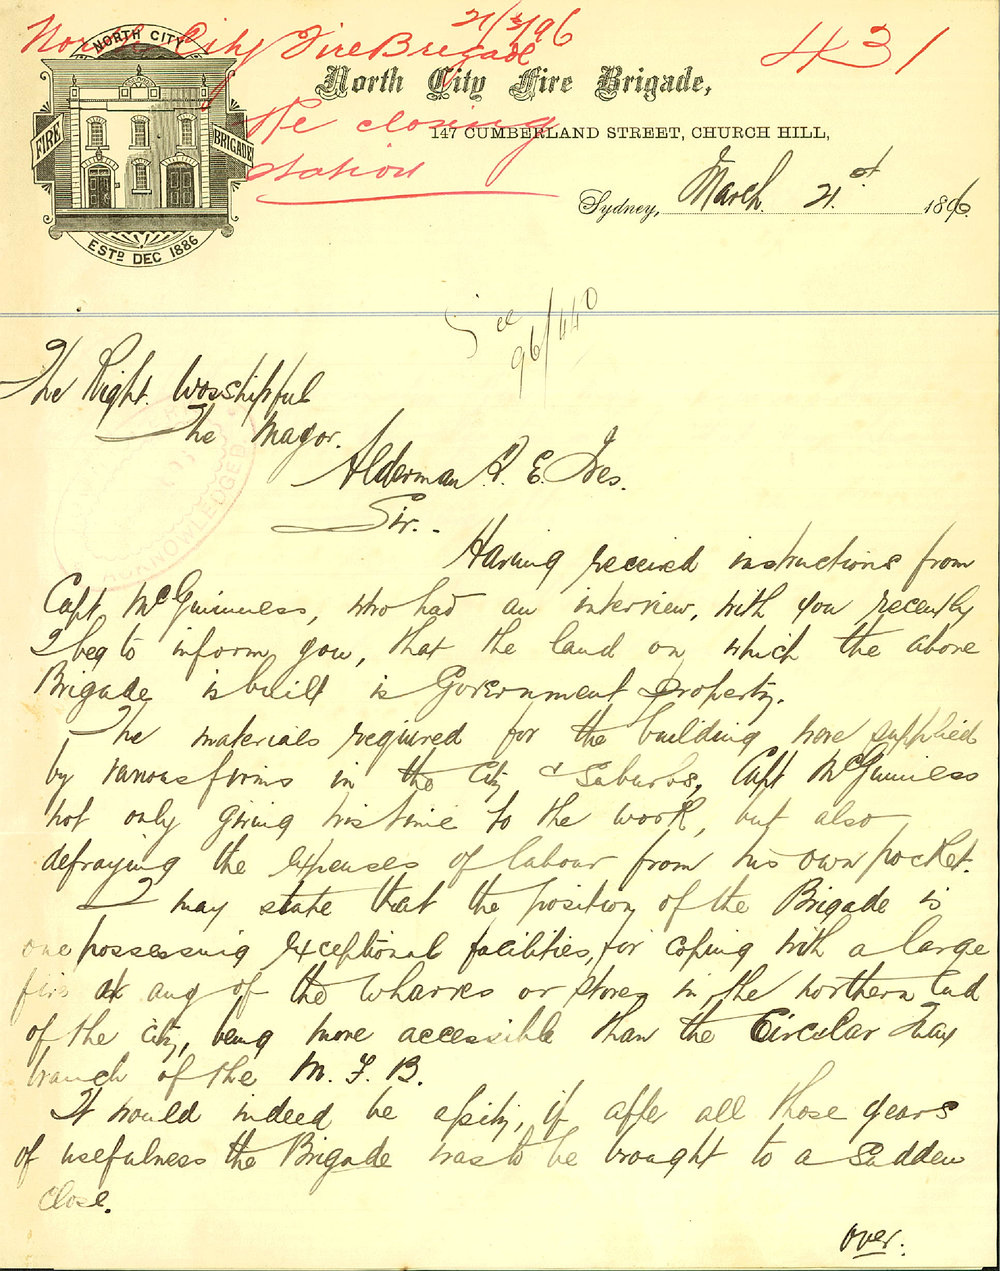 21/3/96
North City Fire Brigade
431
Re closing
station
NORTH CITY
FIRE
BRIGADE
ESTD DEC 1886
North City Fire Brigade,
147 CUMBERLAND STREET, CHURCH HILL,
Sydney, March. 21.st 1896.
See
96/440
The Right Worshipful
The Mayor.
ACKNOWLEDGED
Alderman I. E. Ives.
Sir.-
Having received instructions from
Capt. McGuinness, who had an interview, with you recently
I beg to inform you, that the land on which the above
Brigade is built is Government property.
The materials required for the building were supplied
by various firms in the City & Suburbs, Capt McGuinness
not only giving his time to the work, but also
defraying the expenses of labour from his own pocket.
I may state that the position of the Brigade is
one possessing exceptional facilities, for coping with a large
fire at any of the wharves or stores in the northern End
of the city, being more accessible than the Circular Quay
branch of the M. F. B.
It would indeed be a pity, if after all those years
of usefulness the Brigade was to be brought to a sudden
close.
over.